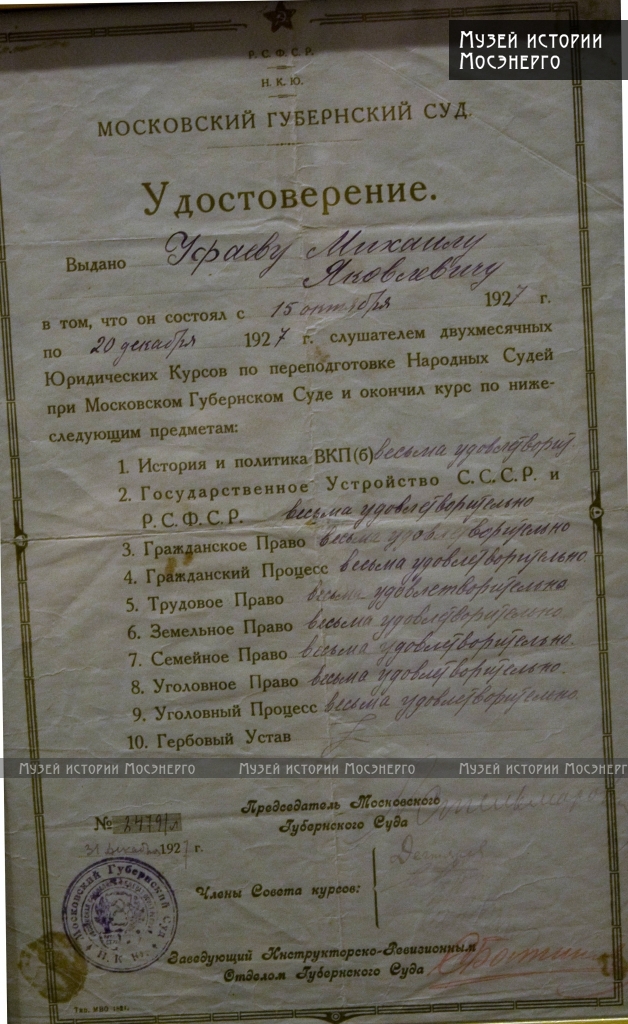 Музей истории
Мосэнерго
Р.С.Ф.С.Р.
Н.К.Ю.
МОСКОВСКИЙ ГУБЕРНСКИЙ СУД.
Удостоверение.
Выдано Михаилу
Яковлевичу
в том, что он состоял с 15 октября 1927 г.
по 20 декабря 1927 г. слушателем двухмесячных
Юридических Курсов по переподготовке Народных Судей
при Московском Губернском Суде и окончил курс по ниже-
следующим предметам:
1. История и политика ВКП(б) весьма удовлетворит.
2. Государственное Устройство С.С.С.Р. и
Р.С.Ф.С.Р. весьма удовлетворительно
3. Гражданское Право весьма удовлетворительно
4. Гражданский Процесс весьма удовлетворительно.
5. Трудовое Право весьма удовлетворительно
6. Земельное Право весьма удовлетворительно.
7. Семейное Право весьма удовлетворительно.
8. Уголовное Право весьма удовлетворительно.
9. Уголовный Процесс весьма удовлетворительно.
10. Гербовый Устав
Музей истории Мосэнерго Музей истории Мосэнерго Музей истории Мосэнерго
Председатель Московского
Губернского Суда
№ 2479/л
31 декабря 1927 г.
Члены Совета курсов:
Московский Губернский Суд
Н.К.Ю.
Заведующий Инструкторско-Ревизионным
Отделом Губернского Суда